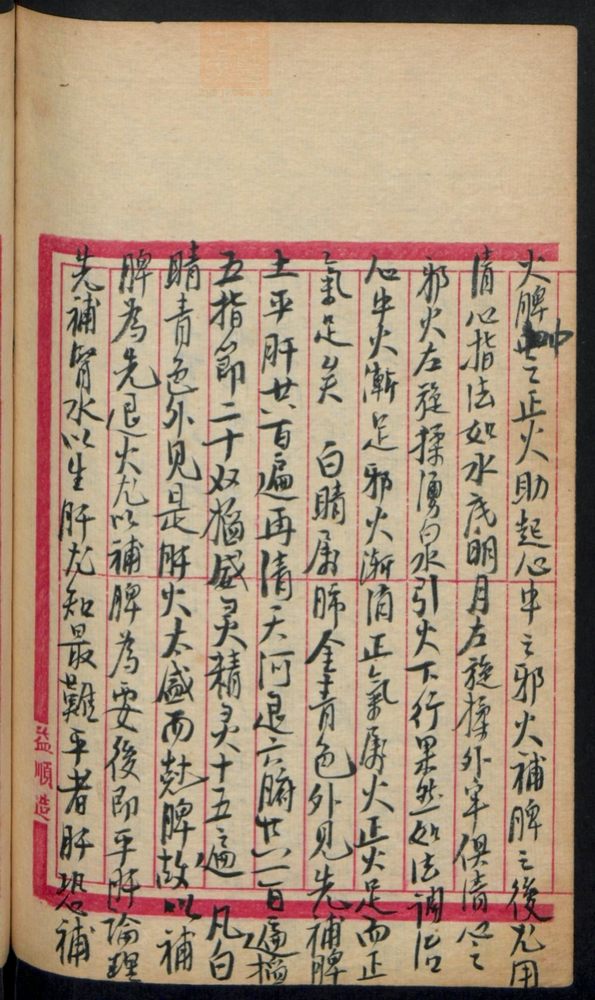 火脾中之正火助起心中之邪火補脾之後尤用
清心指法如水底明月左旋揉外牢俱清心之
邪火左旋揉湧泉水引火下行果然如法調治
心中火漸足邪火漸消正氣屬火正火足而正
氣足矣 白睛屬肺金青色外見先補脾
土平肝廿六百遍再清天河退六腑廿六百遍掐
五指節二十次猛威灵精灵十五遍 凡白
睛青色外見是肝火太盛而尅脾故以補
脾為先退火尤以補脾為要後即平肝論理
先補腎水以生肝尤知最難平者肝恐補
益順造